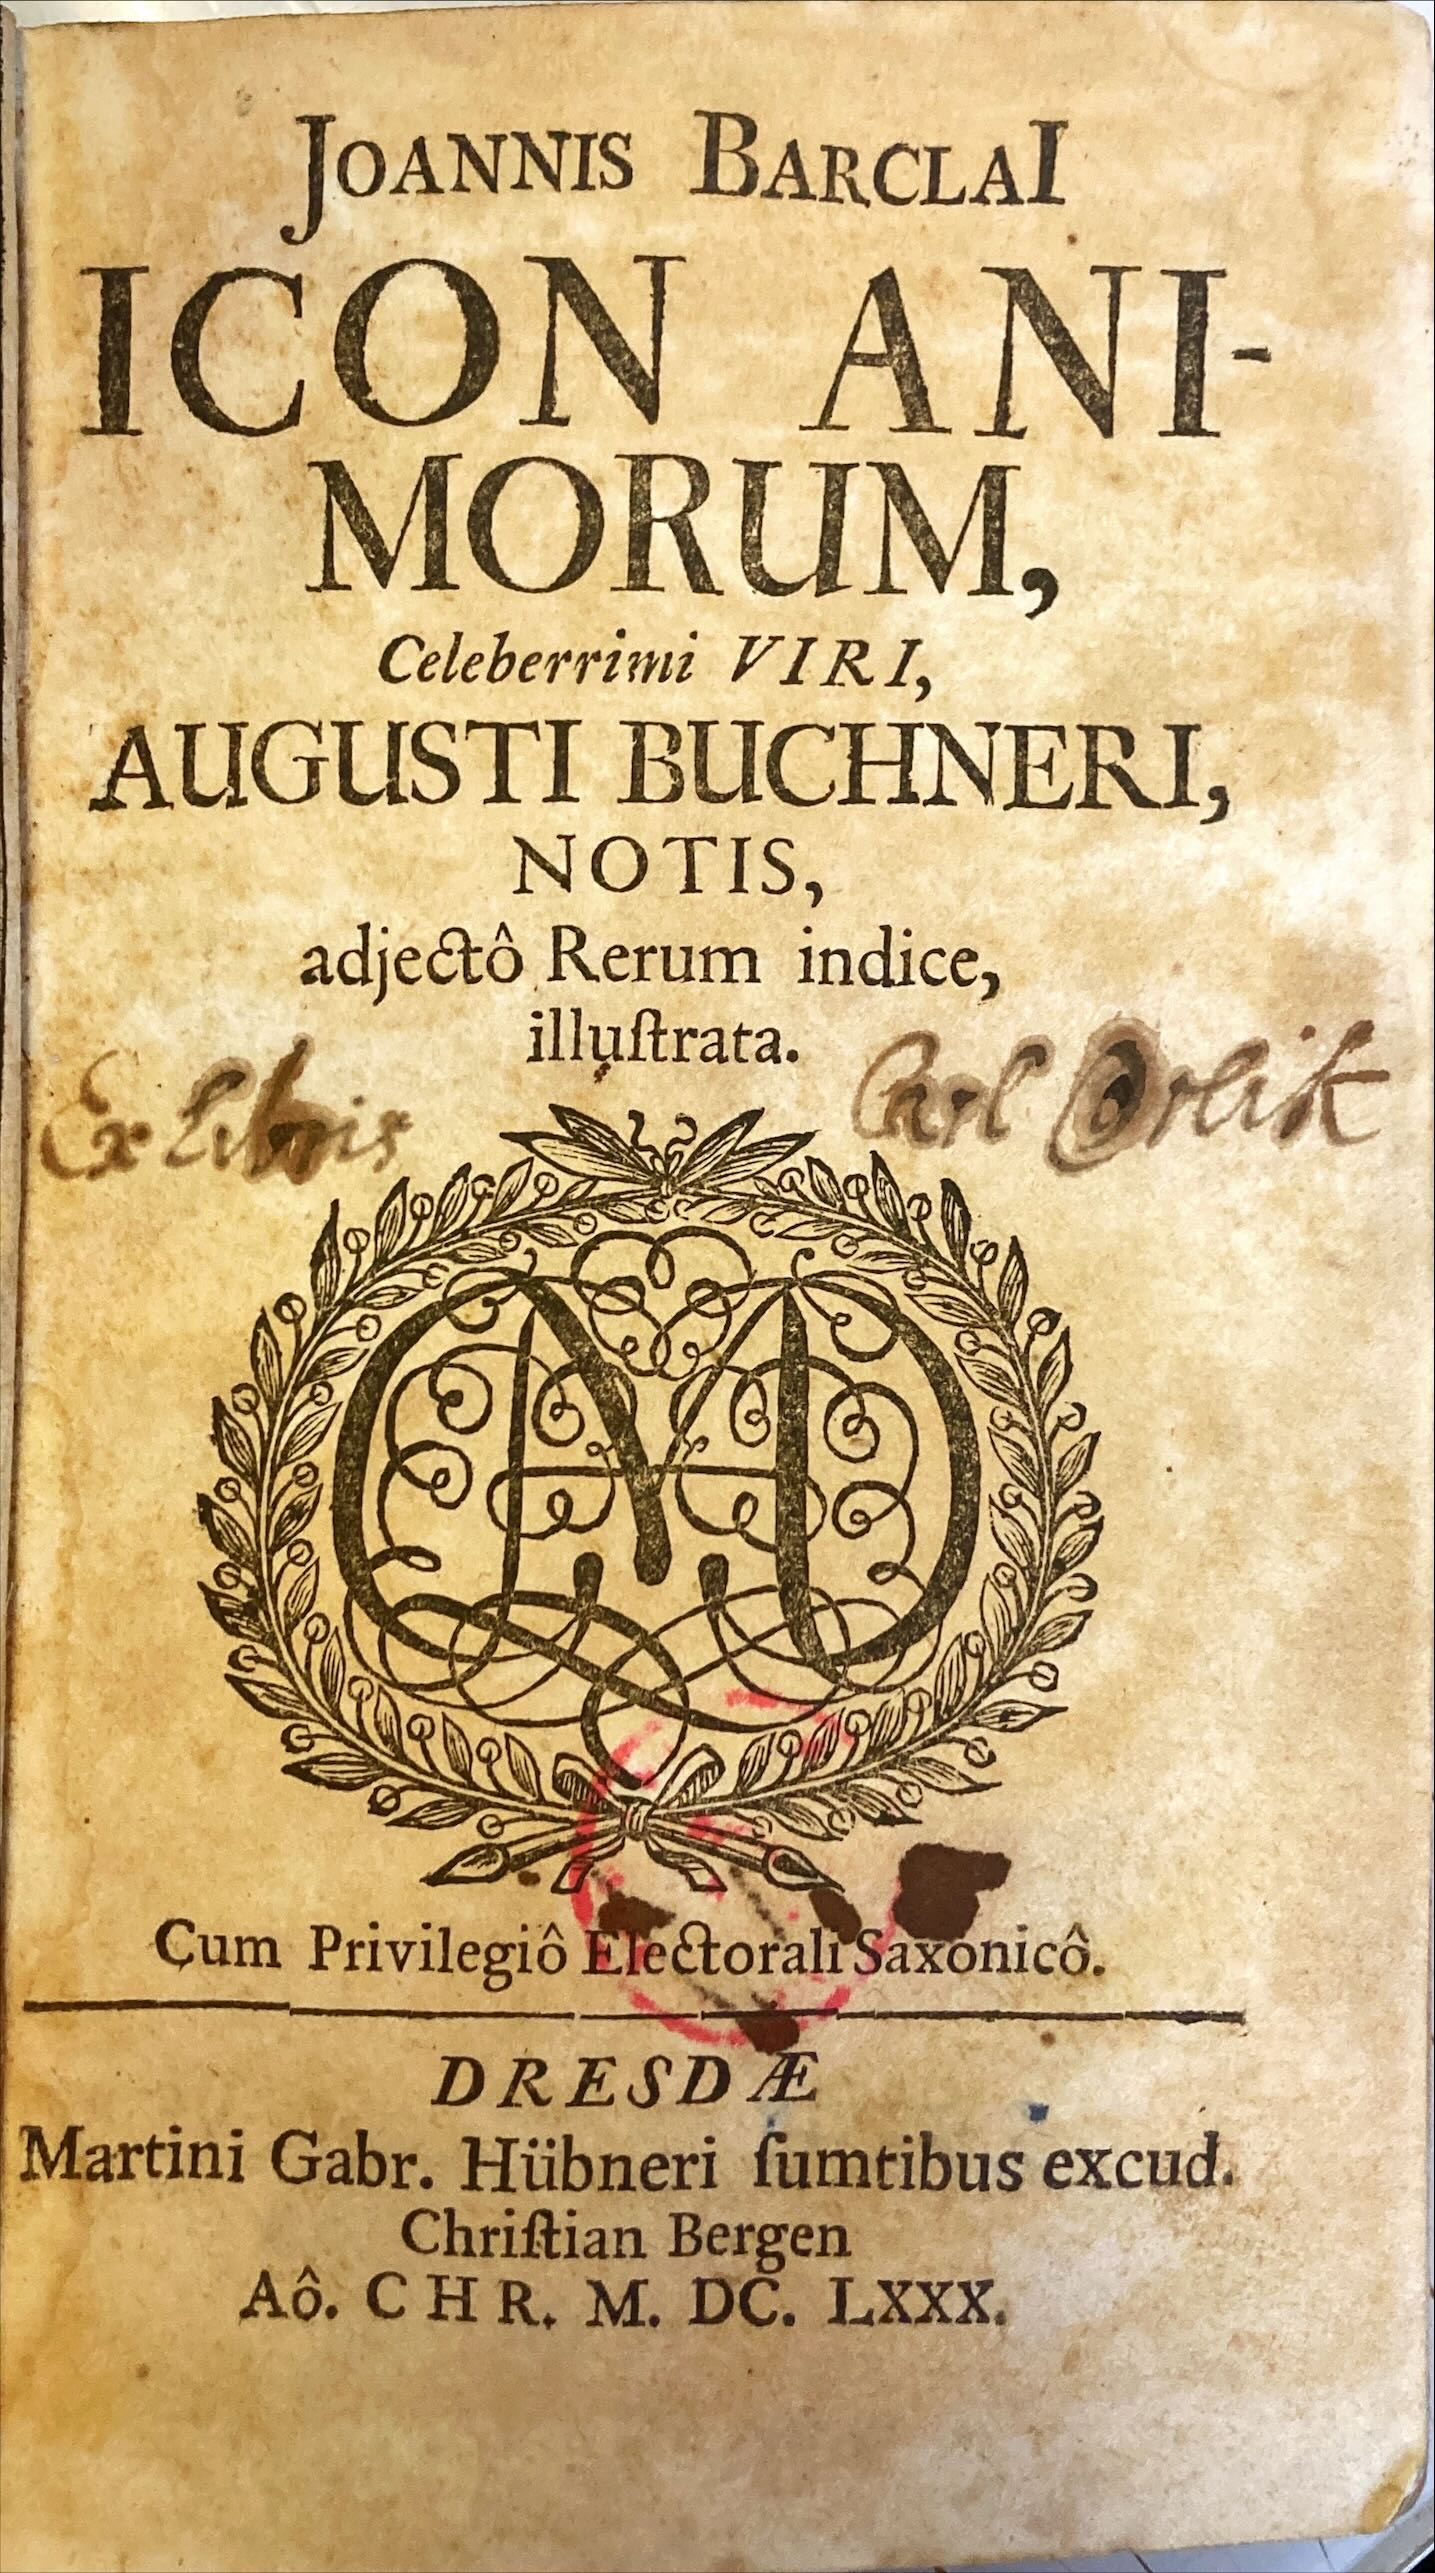 JOANNIS BARCLAI
ICON ANI-
MORUM,
Celeberrimi VIRI,
AUGUSTI BUCHNERI,
NOTIS,
adjectô Rerum indice,
illuſtrata.
Ex Libris Carl Orlik
Cum Privilegiô Electorali Saxonicô.
DRESDÆ
Martini Gabr. Hübneri ſumtibus excud.
Chriſtian Bergen
Aô. CHR. M. DC. LXXX.